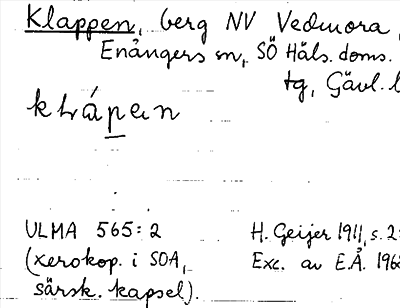 Klappen, berg NV Vedmora,
Enångers sn, SÖ Häls. doms.
tg, Gävl. l
klápen
ULMA 565:2
H. Geijer 1911, s. 2
(xerokop. i SOA,
Exc. av E.Å. 196
särsk. kapsel).